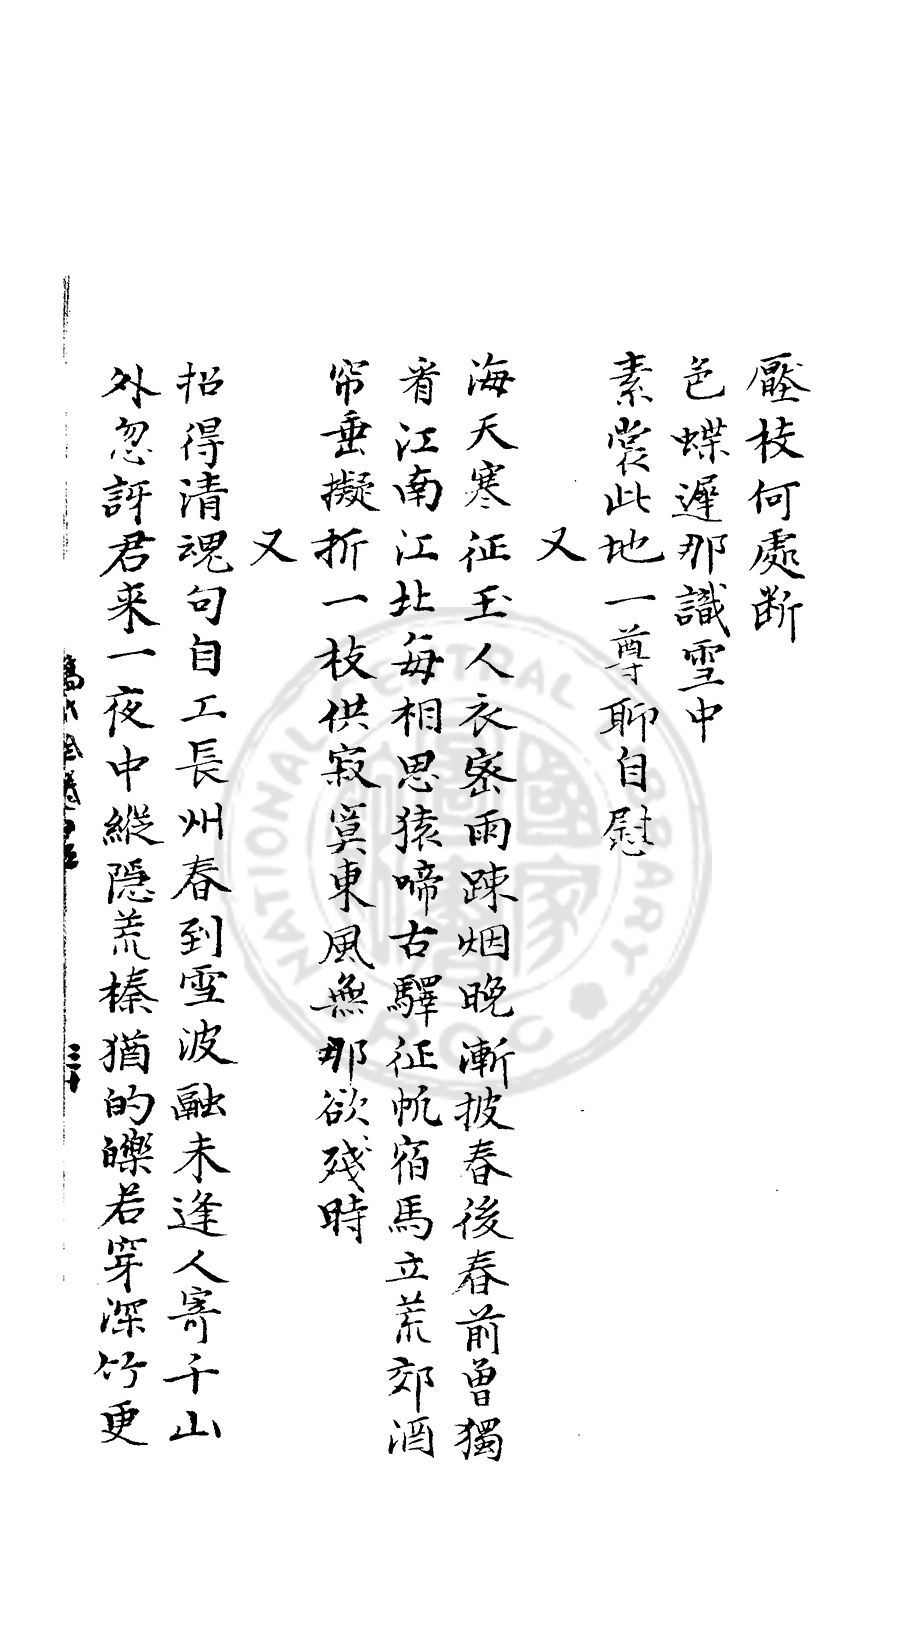 壓枝何處断
色蝶遲那識雪中
素裳此地一尊聊自慰
又
海天寒征玉人衣密雨踈烟晚漸披春後春前曾獨
看江南江北每相思猿啼古驛征帆宿馬立荒郊酒
帘垂擬折一枝供寂寞東風無那欲殘時
又
招得清魂句自工長州春到雪波融未逢人寄千山
外忽訝君来一夜中縱隱荒榛猶的皪若穿深竹更
三十
NATIONAL CENTRAL LIBRARY R.O.C.
國家圖書館